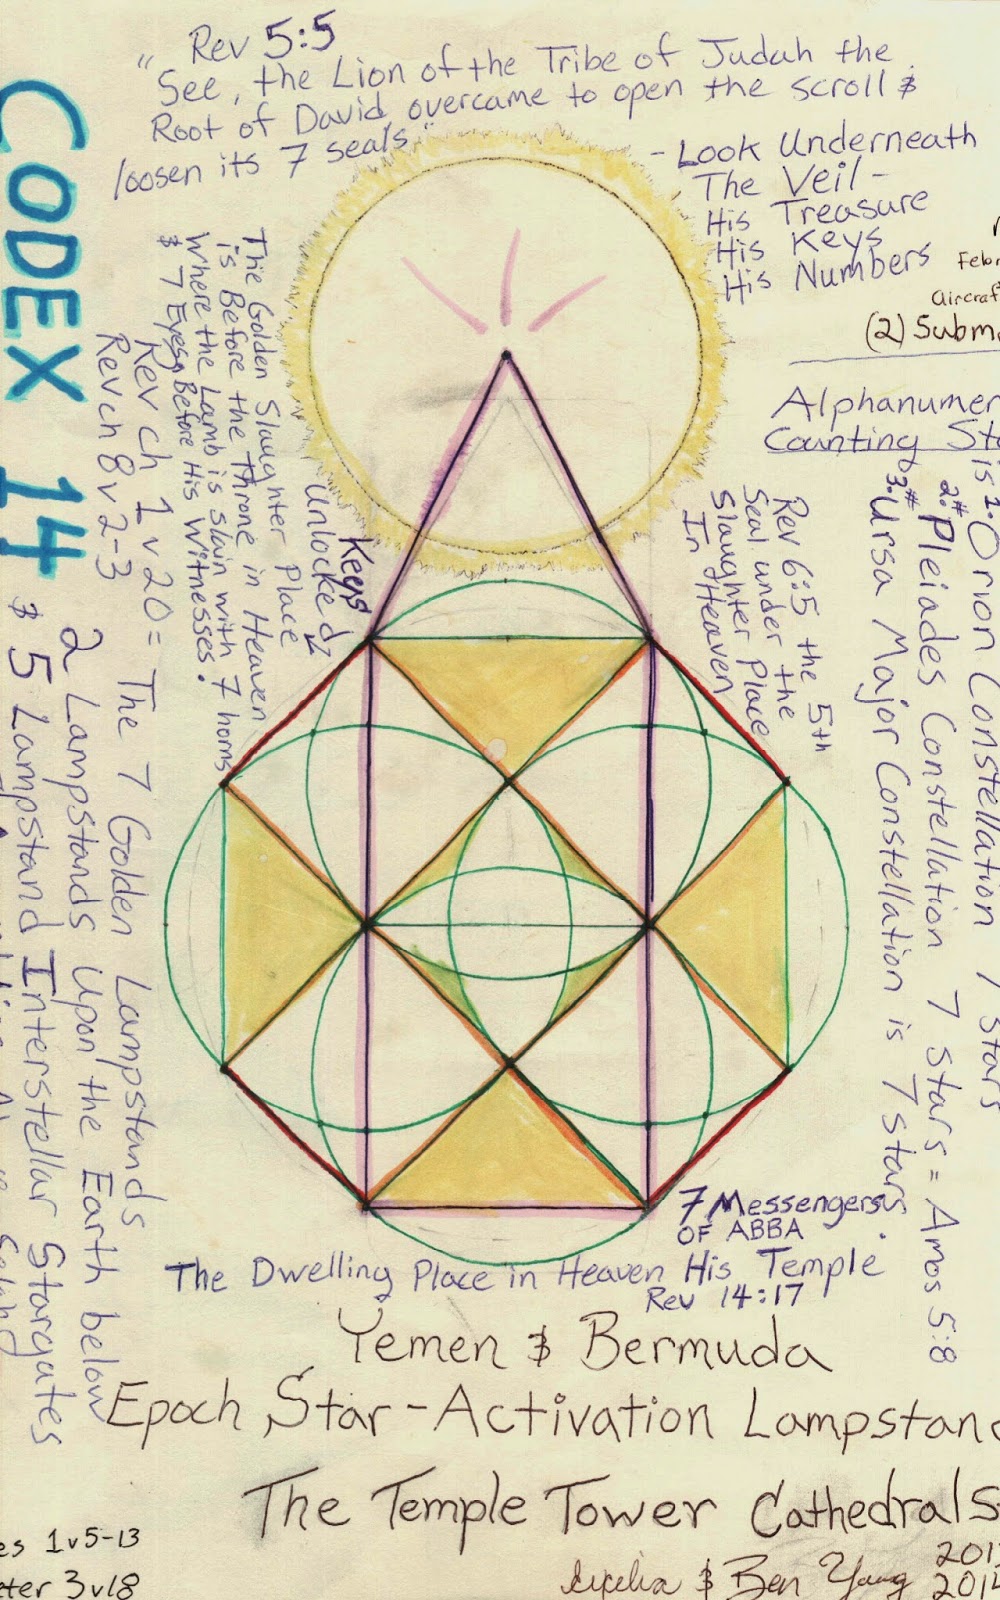 Rev 5:5
"See, the Lion of the Tribe of Judah the
Root of David overcame to open the scroll &
loosen its 7 seals"
- Look Underneath
The Veil -
His Treasure
His Keys
His Numbers
(2)
Alphanumer
Counting
is 1. Orion Constellation 7 stars
2.# Pleiades Constellation 7 stars = Amos 5:8
3.# Ursa Major Constellation is 7 stars
CODEX 14
The Golden Slaughter Place
is Before the Throne in Heaven
Where the Lamb is Slain with 7 horns
& 7 Eyes Before His Witnesses.
Rev ch 1 v 20 = The 7 Golden Lampstands
Rev ch 8 v 2-3
2 Lampstands Upon the Earth below
& 5 Lampstand Interstellar Stargates
Keys
Unlocked
Rev 6:5 the 5th
Seal under the
Slaughter Place
In Heaven
7 Messengers
OF ABBA
The Dwelling Place in Heaven His Temple
Rev 14:17
Yemen & Bermuda
Epoch Star-Activation Lampstan
The Temple Tower Cathedrals
1 v 5-13
3 v 18
& Ben Young
201
2014